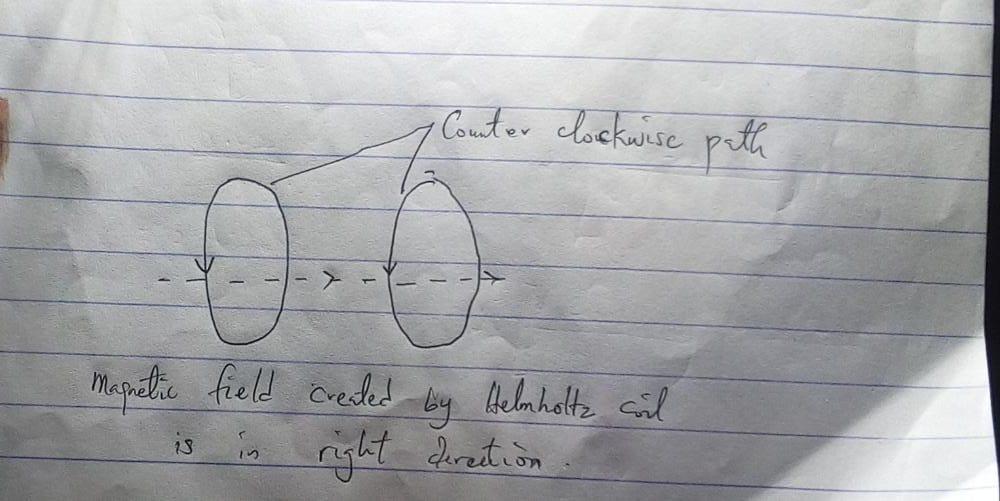 Counter clockwise path
Magnetic field created by Helmholtz coil
is in right direction.